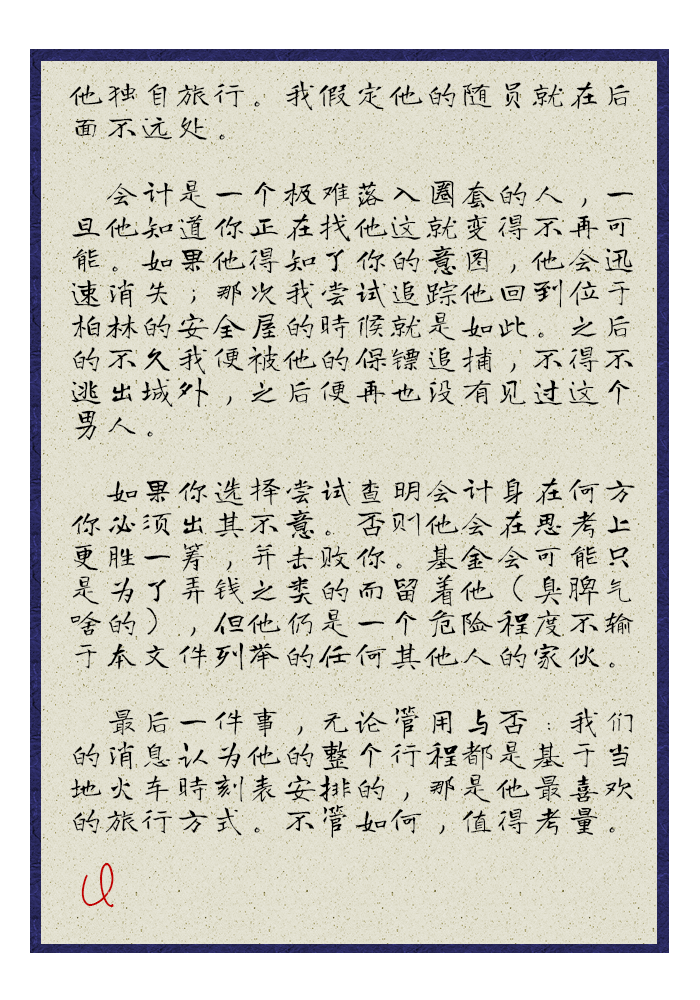 他独自旅行。我假定他的随员就在后
面不远处。
会计是一个极难落入圈套的人，一
旦他知道你正在找他这就变得不再可
能。如果他得知了你的意图，他会迅
速消失；那次我尝试追踪他回到位于
柏林的安全屋的時候就是如此。之后
的不久我便被他的保镖追捕，不得不
逃出城外，之后便再也没有见过这个
男人。
如果你选择尝试查明会计身在何方
你必须出其不意。否则他会在思考上
更胜一筹，并击败你。基金会可能只
是为了弄钱之类的而留着他（臭脾气
啥的），但他仍是一个危险程度不输
于本文件列举的任何其他人的家伙。
最后一件事，无论管用与否：我们
的消息认为他的整个行程都是基于当
地火车時刻表安排的，那是他最喜欢
的旅行方式。不管如何，值得考量。